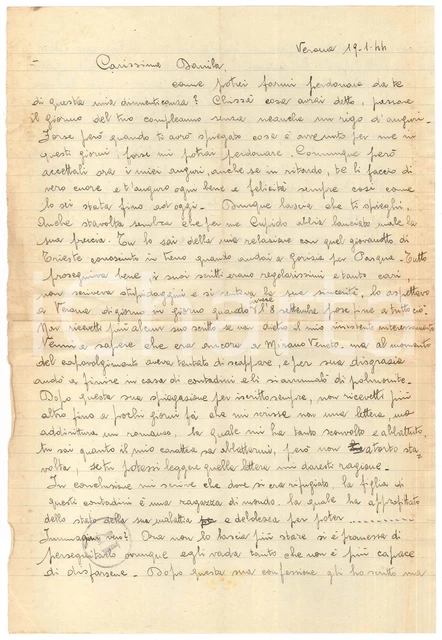 Verona 19-1-44
Carissima Danila,
come potrei farmi perdonare da te
di questa mia dimenticanza? Chissà cosa avrai detto, passare
il giorno del tuo compleanno senza neanche un rigo d'auguri.
Forse però quando ti avrò spiegato cosa è avvenuto per me in
questi giorni, forse mi potrai perdonare. Comunque però
accettali ora i miei auguri, anche se in ritardo, te li faccio di
vero cuore e t'auguro ogni bene e felicità sempre così come
lo sei stata fino ad oggi. Dunque lascia che ti spieghi.
Anche stavolta sembra che per me Cupido abbia lanciato male la
sua freccia. Tu lo sai della mia relazione con quel giovanotto di
Trieste conosciuto in treno quando andai a Gorizia per Pasqua. Tutto
proseguiva bene, i suoi scritti erano regolarissimi e tanto cari,
non scriveva stupidaggini e si sentiva la sua sincerità, lo aspettavo
a Verona di giorno in giorno quando venne l'8 settembre pose fine a tutto ciò.
Non ricevetti più alcun suo scritto se non dietro il mio insistente
Venni a sapere che era ancora a Mirano Veneto, ma al momento
del capovolgimento aveva tentato di scappare, e per sua disgrazia
andò a finire in casa di contadini e lì si ammalò di polmonite.
Dopo questa sua spiegazione per iscritto sempre, non ricevetti più
altro fino a pochi giorni fa che mi scrisse non una lettera, ma
addirittura un romanzo, la quale mi ha tanto sconvolto e abbattuto,
tu sai quanto il mio carattere sa abbattermi, però non a torto sta-
volta, se tu potessi leggere quella lettera mi daresti ragione.
In conclusione mi scrive che dove si era rifugiato la figlia di
questi contadini è una ragazza di mondo, la quale ha approfittato
dello stato della sua malattia e debolezza per poter ............
Immagini vero? Ora non lo lascia più stare si è promessa di
perseguitarlo ovunque egli vada tanto che non è più capace
di disfarsene. Dopo questa sua confessione gli ho scritto ma